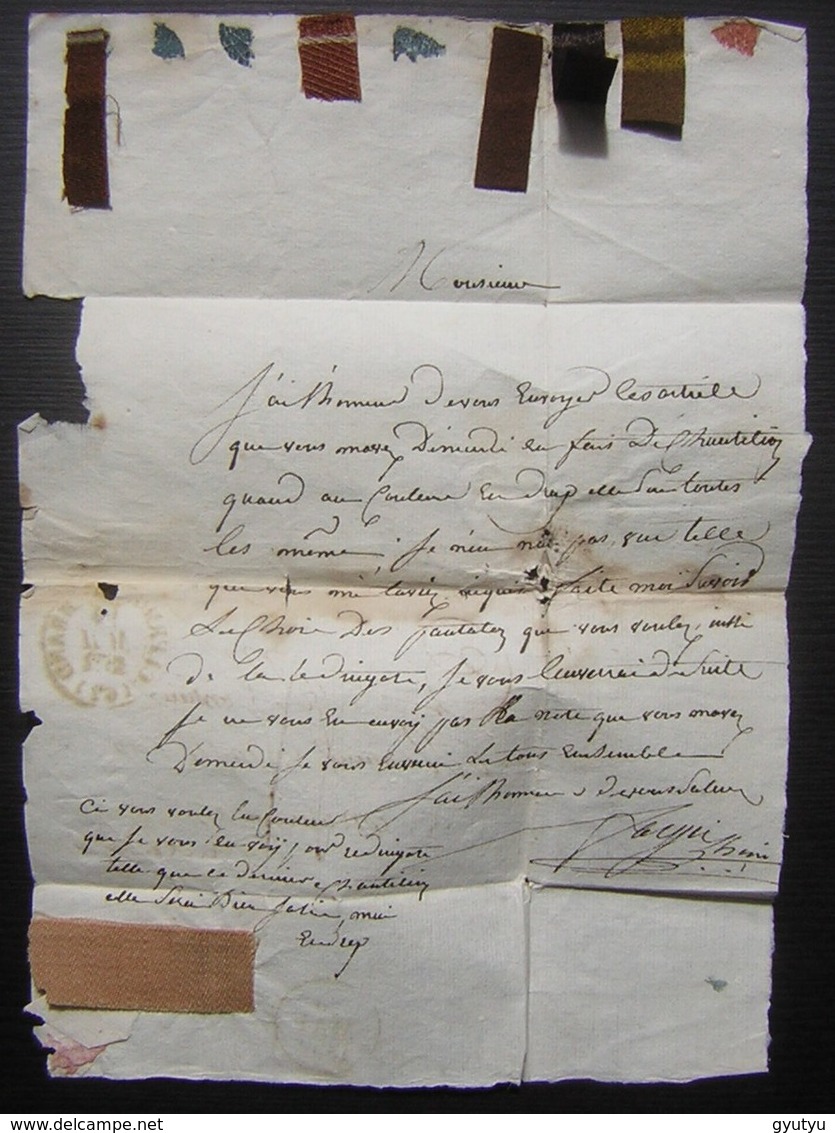 Monsieur
J'ai l'honneur de vous Envoyer les article
que vous mavez Demendé en fais De Chantilion
quand au Couleur En drap elle son toutes
les même, je n'en n'ai pas vue telle
que vous faite moi Savoir
Le Choi Des pantalon que vous voulez, insi
De la Redingote, Je vous l'enverrai de suite
Je ne vous En envoÿ pas la note que vous mavez
Demendé Je vous Enverai Le tous Ensemble
J'ai l'honneur de vous Saluer
Ci vous voulez En Couleur
que Je vous En voÿ pour redingote
telle que ce dernier Chantilion
elle Sera Bien Jolie, mui
En drap
delcampe.net
gyutyu